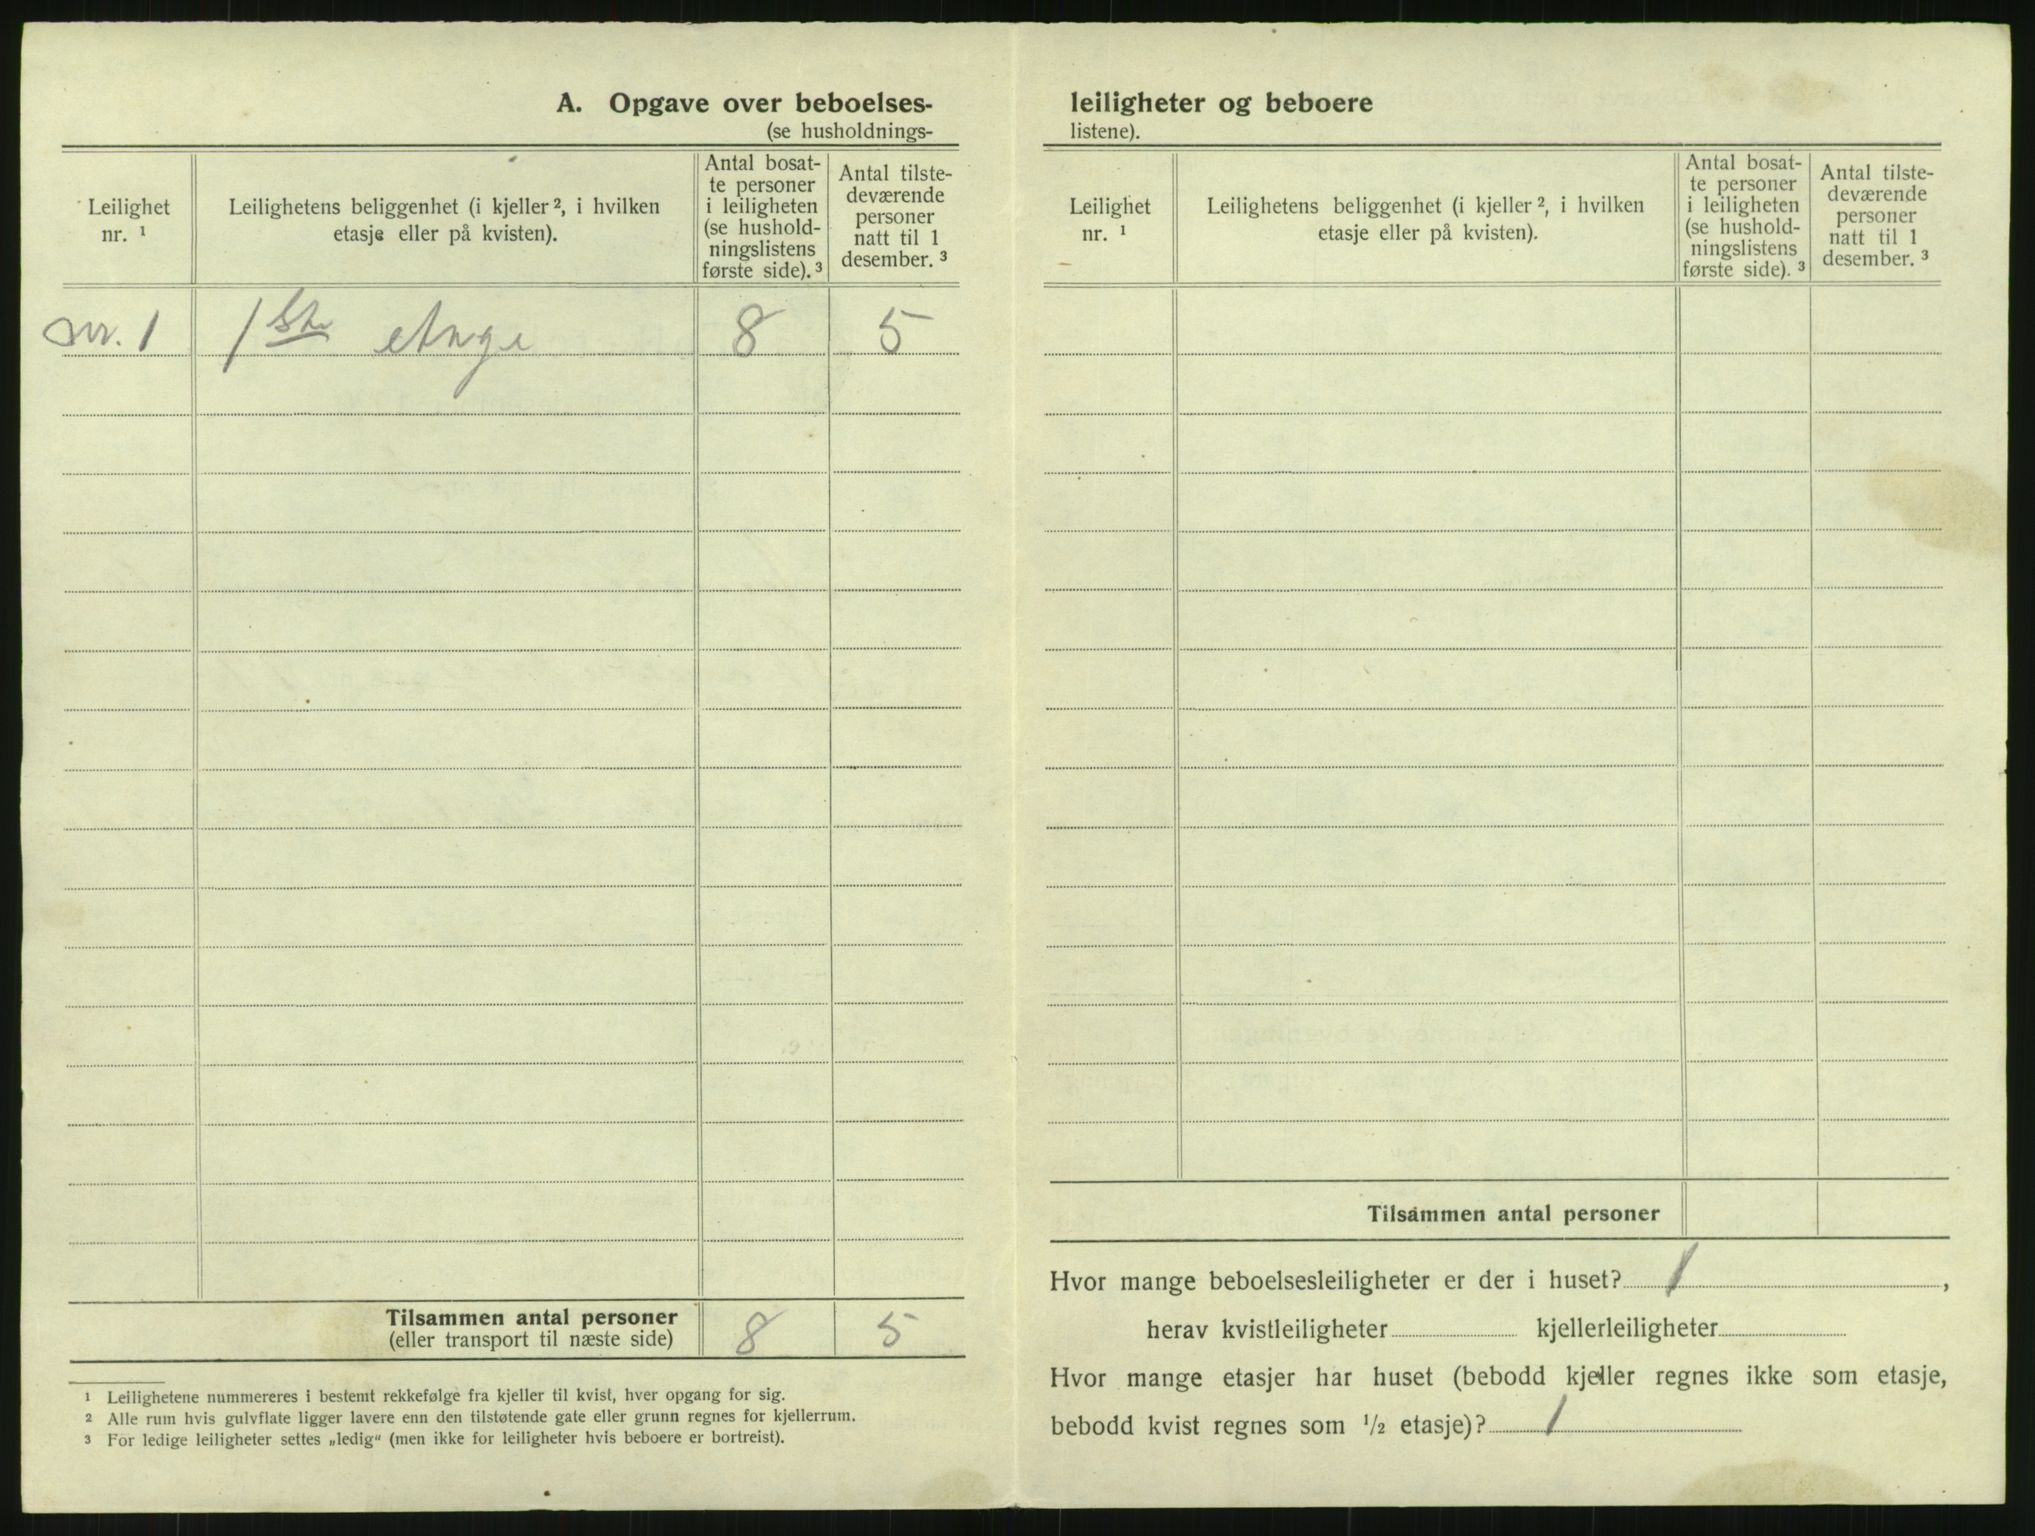 A. Opgave over beboelses-
(se husholdnings-
Leilighet
nr. ¹
Leilighetens beliggenhet (i kjeller ², i hvilken
etasje eller på kvisten).
Antal bosat-
te personer
i leiligheten
(se hushold-
ningslistens
første side). ³
Antal tilste-
deværende
personer
natt til 1
desember. ³
nr. 1 1ste etage 8 5
Tilsammen antal personer 8 5
(eller transport til næste side)
¹ Leilighetene nummereres i bestemt rekkefølge fra kjeller til kvist, hver opgang for sig.
² Alle rum hvis gulvflate ligger lavere enn den tilstøtende gate eller grunn regnes for kjellerrum.
³ For ledige leiligheter settes „ledig“ (men ikke for leiligheter hvis beboere er bortreist).
leiligheter og beboere
listene).
Leilighet
nr. ¹
Leilighetens beliggenhet (i kjeller ², i hvilken
etasje eller på kvisten).
Antal bosat-
te personer
i leiligheten
(se hushold-
ningslistens
første side). ³
Antal tilste-
deværende
personer
natt til 1
desember. ³
Tilsammen antal personer
Hvor mange beboelsesleiligheter er der i huset? 1,
herav kvistleiligheter kjellerleiligheter
Hvor mange etasjer har huset (bebodd kjeller regnes ikke som etasje,
bebodd kvist regnes som ½ etasje)? 1